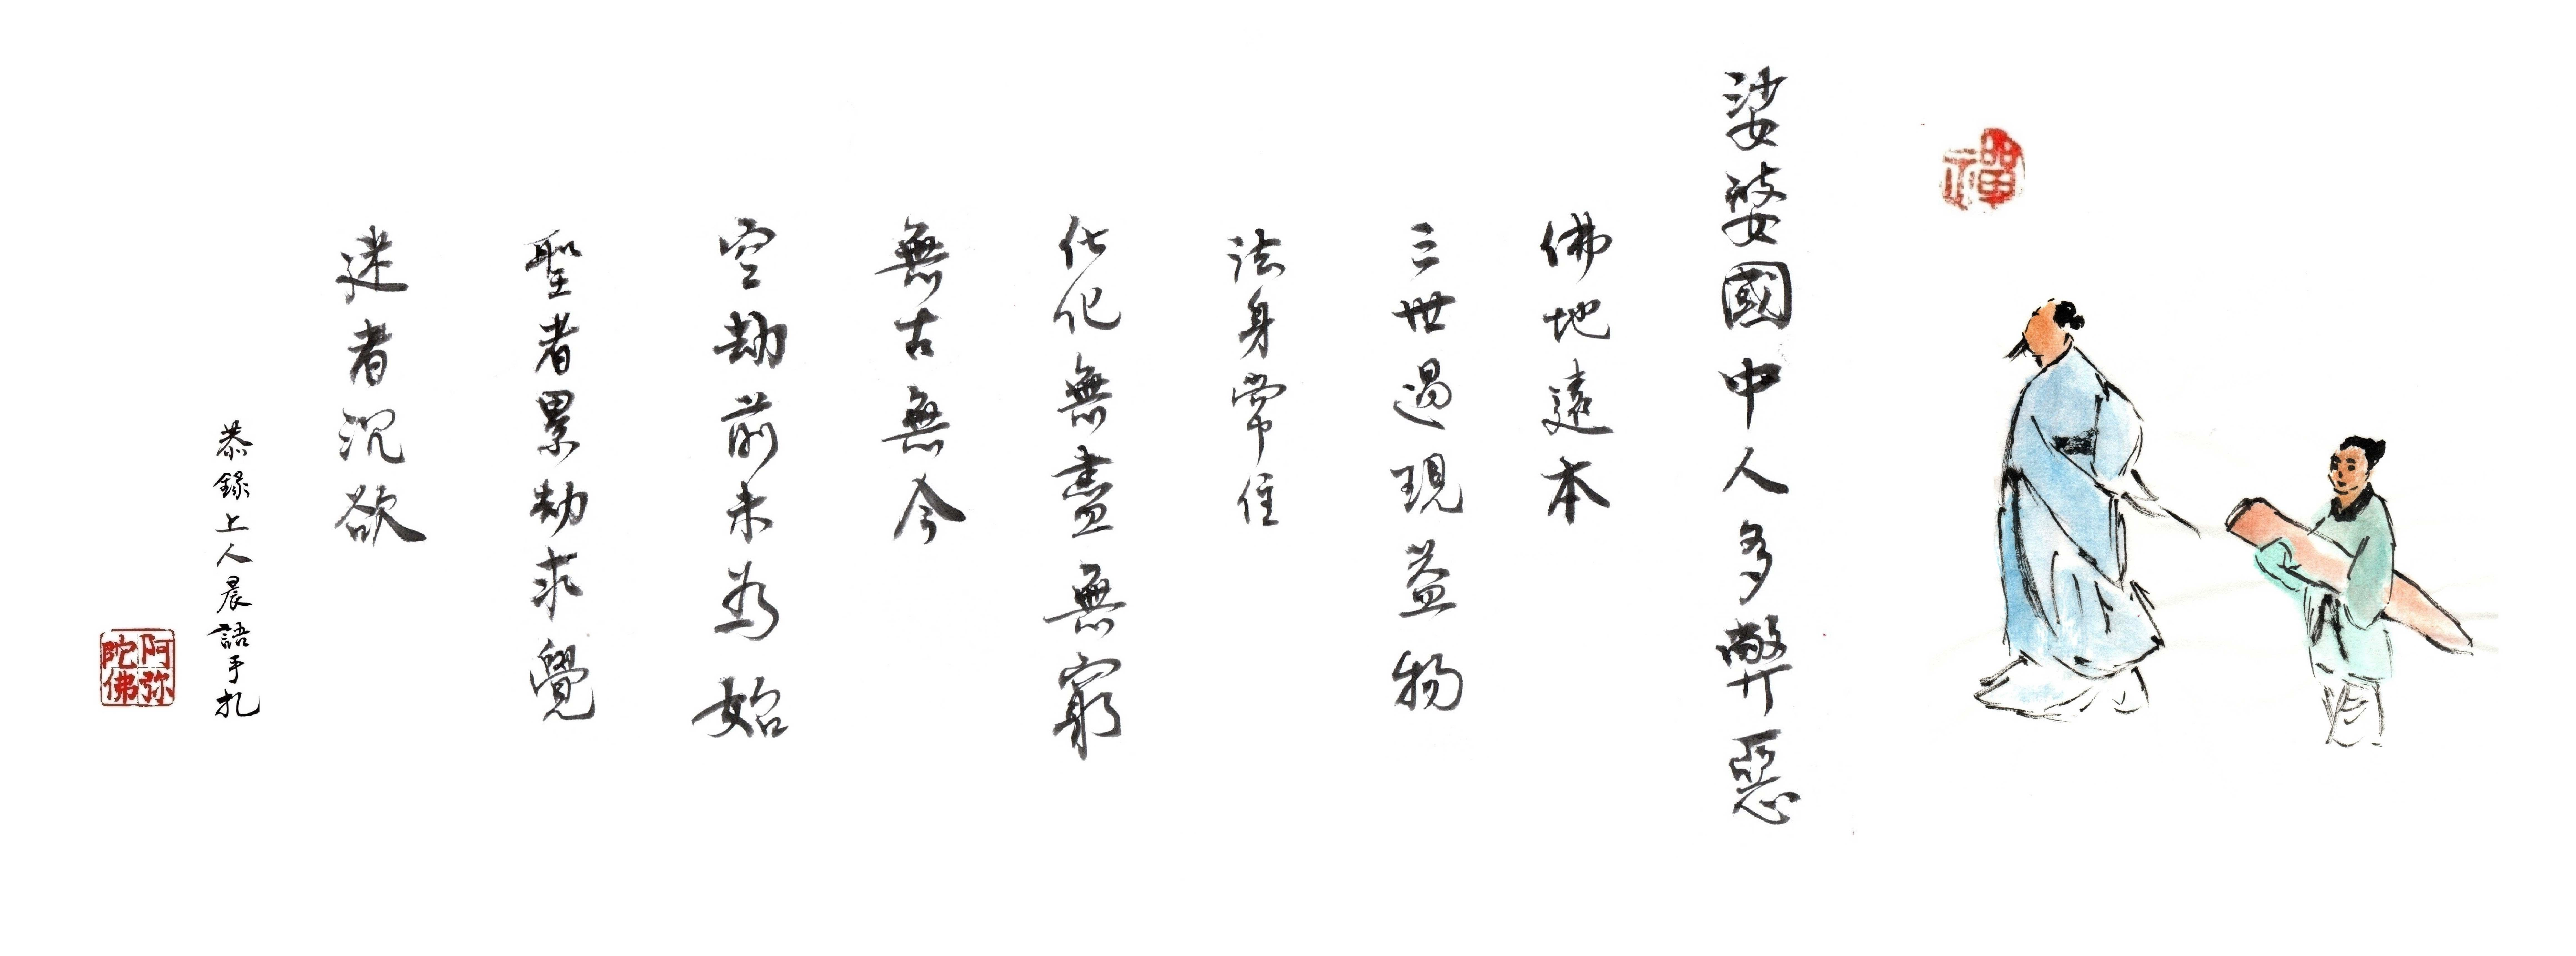 禪
娑婆國中人多弊惡
佛地遠本
三世過現益物
法身常住
化化無盡無窮
無古無今
空劫前未為始
聖者累劫求覺
迷者沉欲
恭錄上人晨語手札
阿弥陀佛